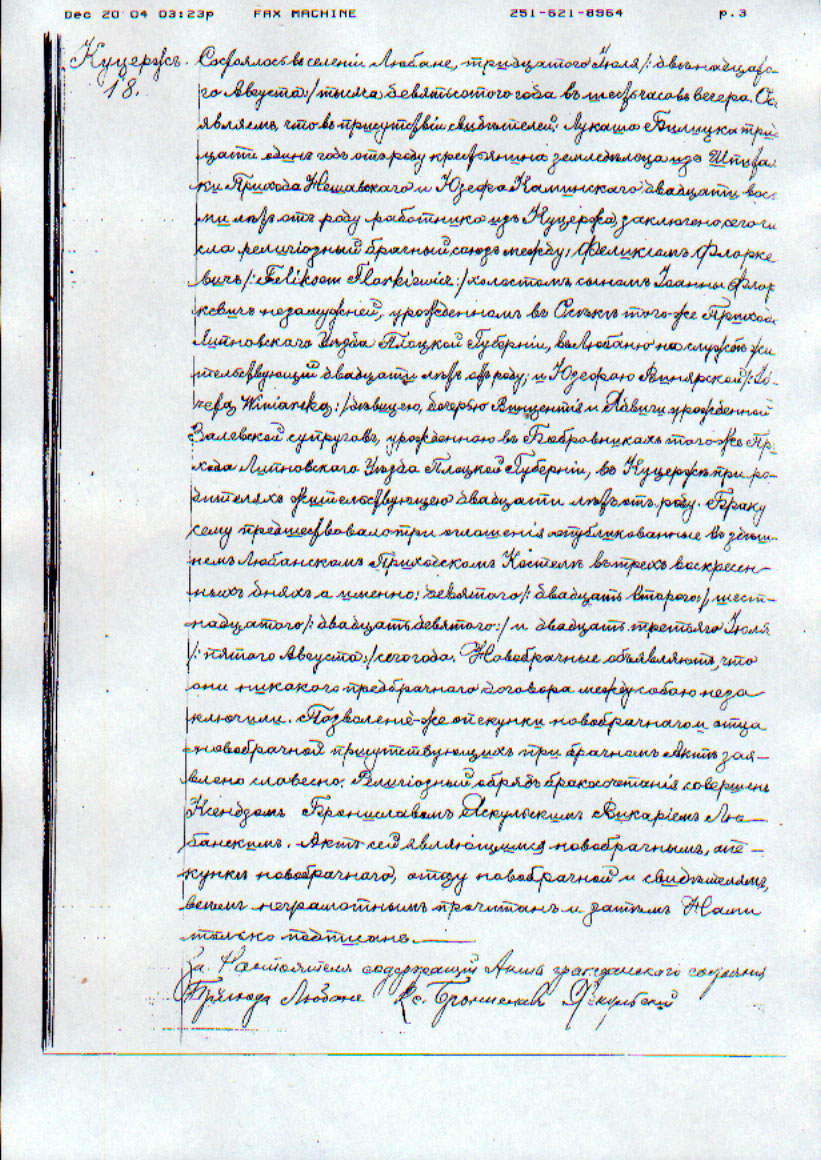 Dec 20 04 03:23p FAX MACHINE 251-621-8964 p.3
Куцержъ.
18.
Состоялось въ селеніи Любане, тридцатаго Іюля /: двѣнадцато-
го Августа :/ тысяча девятьсотого года въ шесть часовъ вечера. Об
являемъ, что въ присутствіи свидѣтелей: Лукаша Билицка трид
цати одинъ годъ отъ роду крестьянина земледѣльца изъ
ки Прихода и Юзефа Каминскаго двадцати вос-
ми лѣтъ отъ роду работника изъ Куцержа, заключено сего чи
сла религіозный брачный союзъ между: Феликсомъ Флорке
вичъ /: Feliksem Florkiewicz :/ холостомъ сыномъ Іоанны Флор
кевичъ незамужней, урожденномъ въ того-же Прихода
Липновскаго Уѣзда Плоцкой Губерніи, въ Любаню на службѣ жи
тельствующій двадцати лѣтъ отъ роду; и Юзефою Винярской /: Jó-
zefą Winiarską :/ дѣвицею, дочерью Винцентія и Ядвиги урожденной
Залевской супруговъ, урожденною въ Бобровникахъ того-же При
хода Липновскаго Уѣзда Плоцкой Губерніи, въ Куцержѣ при ро-
дителяхъ жительствующею двадцати лѣтъ отъ роду. Браку
сему предшествовало три оглашенія опубликованные въ здѣш-
немъ Любанскомъ Приходскомъ Костелѣ въ трехъ воскресен-
ныхъ дняхъ а именно: девятого /: двадцать второго :/, шест-
надцатого /: двадцать девятого :/ и двадцать третьяго Іюля
/: пятаго Августа :/ сего года. Новобрачные объявляютъ, что
они никакого предбрачнаго договора между собою неза
ключили. Позволеніе-же опекунки новобрачнаго и отца
новобрачной присутствующихъ при брачномъ Актѣ зая-
влено словесно. Религіозный обрядъ бракосочетанія совершенъ
Ксендзомъ Брониславомъ Викаріемъ Лю-
банскимъ. Актъ сей являющимся новобрачнымъ, опе-
кункѣ новобрачнаго, отцу новобрачной и свидѣтелямъ,
всѣмъ неграмотнымъ прочитанъ и затѣмъ Нами
только подписанъ.
За. Настоятеля содержащій Акты гражданскаго состоянія
Прихода Любане Кс. Брониславъ